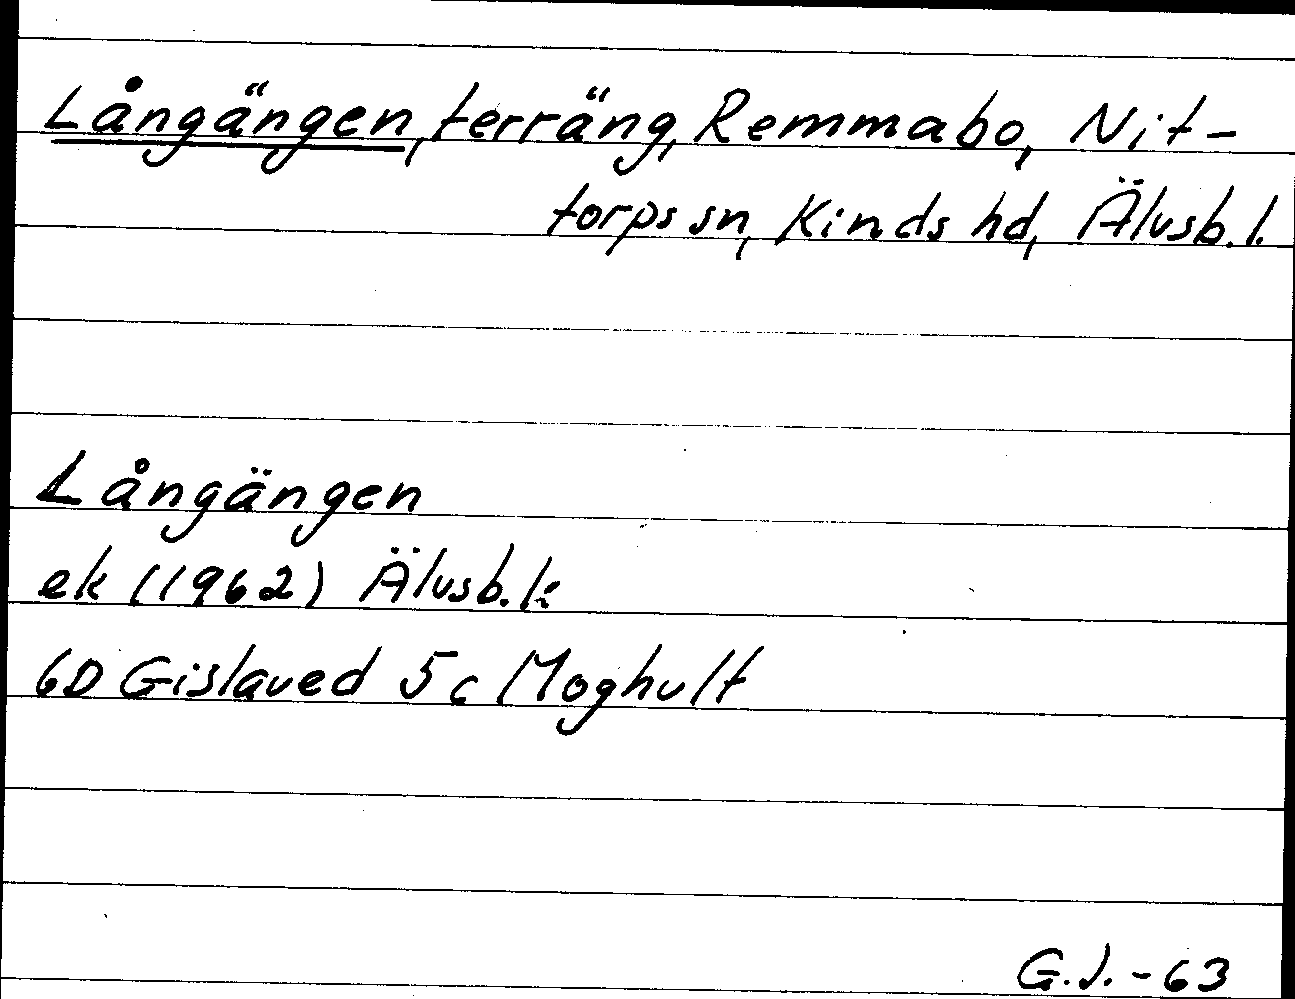 Långängen, terräng, Remmabo, Nit-
torps sn, Kinds hd, Älvsb. l.
Långängen
ek (1962) Älvsb. l:
6D Gislaved 5c Moghult
G.J. - 63